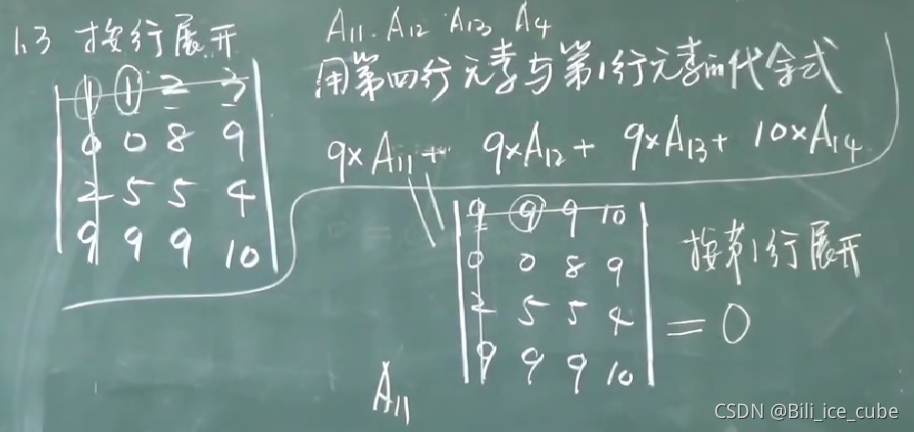 1.3 按行展开
1 1 2 3
0 0 8 9
2 5 5 4
9 9 9 10
A11 A12 A13 A4
用第四行元素与第1行元素的代余式
9×A11+ 9×A12+ 9×A13+ 10×A14
9 9 9 10
0 0 8 9
2 5 5 4
9 9 9 10
按第1行展开
=0
A11
CSDN @Bili_ice_cube